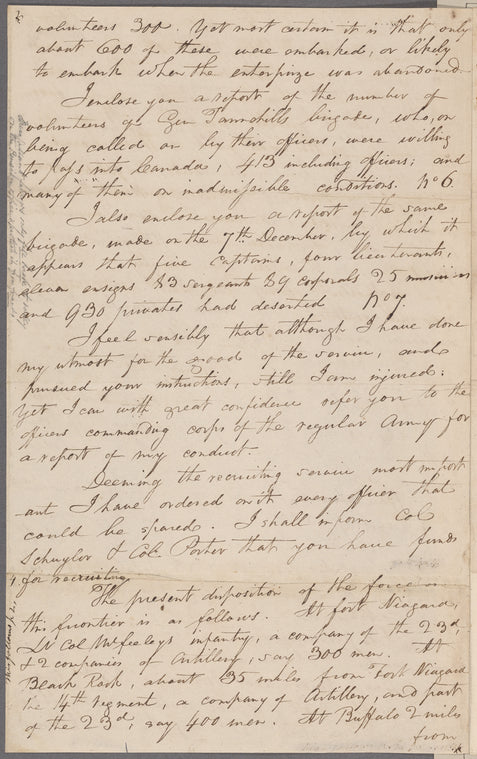 volunteers 300. Yet most certain it is that only
about 600 of these were embarked, or likely
to embark when the enterprize was abandoned.
I enclose you a report of the number of
volunteers of Gen Tannehills brigade, who, on
being called on by their officers, were willing
to pass into Canada, 413 including officers; and
many of them on inadmissible conditions. No 6.
I also enclose you a report of the same
brigade, made on the 7th December, by which it
appears that five captains, four lieutenants,
eleven ensigns 83 sergeants 39 corporals 25 musicians
and 930 privates had deserted No 7.
I feel sensibly that although I have done
my utmost for the good of the service, and
pursued your instructions, still I am injured:
Yet I can with great confidence refer you to the
officers commanding corps of the regular Army for
a report of my conduct.
Deeming the recruiting service most import
ant I have ordered on it every officer that
could be spared. I shall inform Col
Schuyler & Col. Porter that you have funds
for recruiting.
The present disposition of the force on
this frontier is as follows. At fort Niagara,
Lt Col McFeeleys infantry, a company of the 23d,
& 2 companies of Artillery, say 300 men. At
Black Rock, about 35 miles from Fort Niagara
the 14th regment, a company of Artillery, and part
of the 23d, say 400 men. At Buffalo 2 miles
from